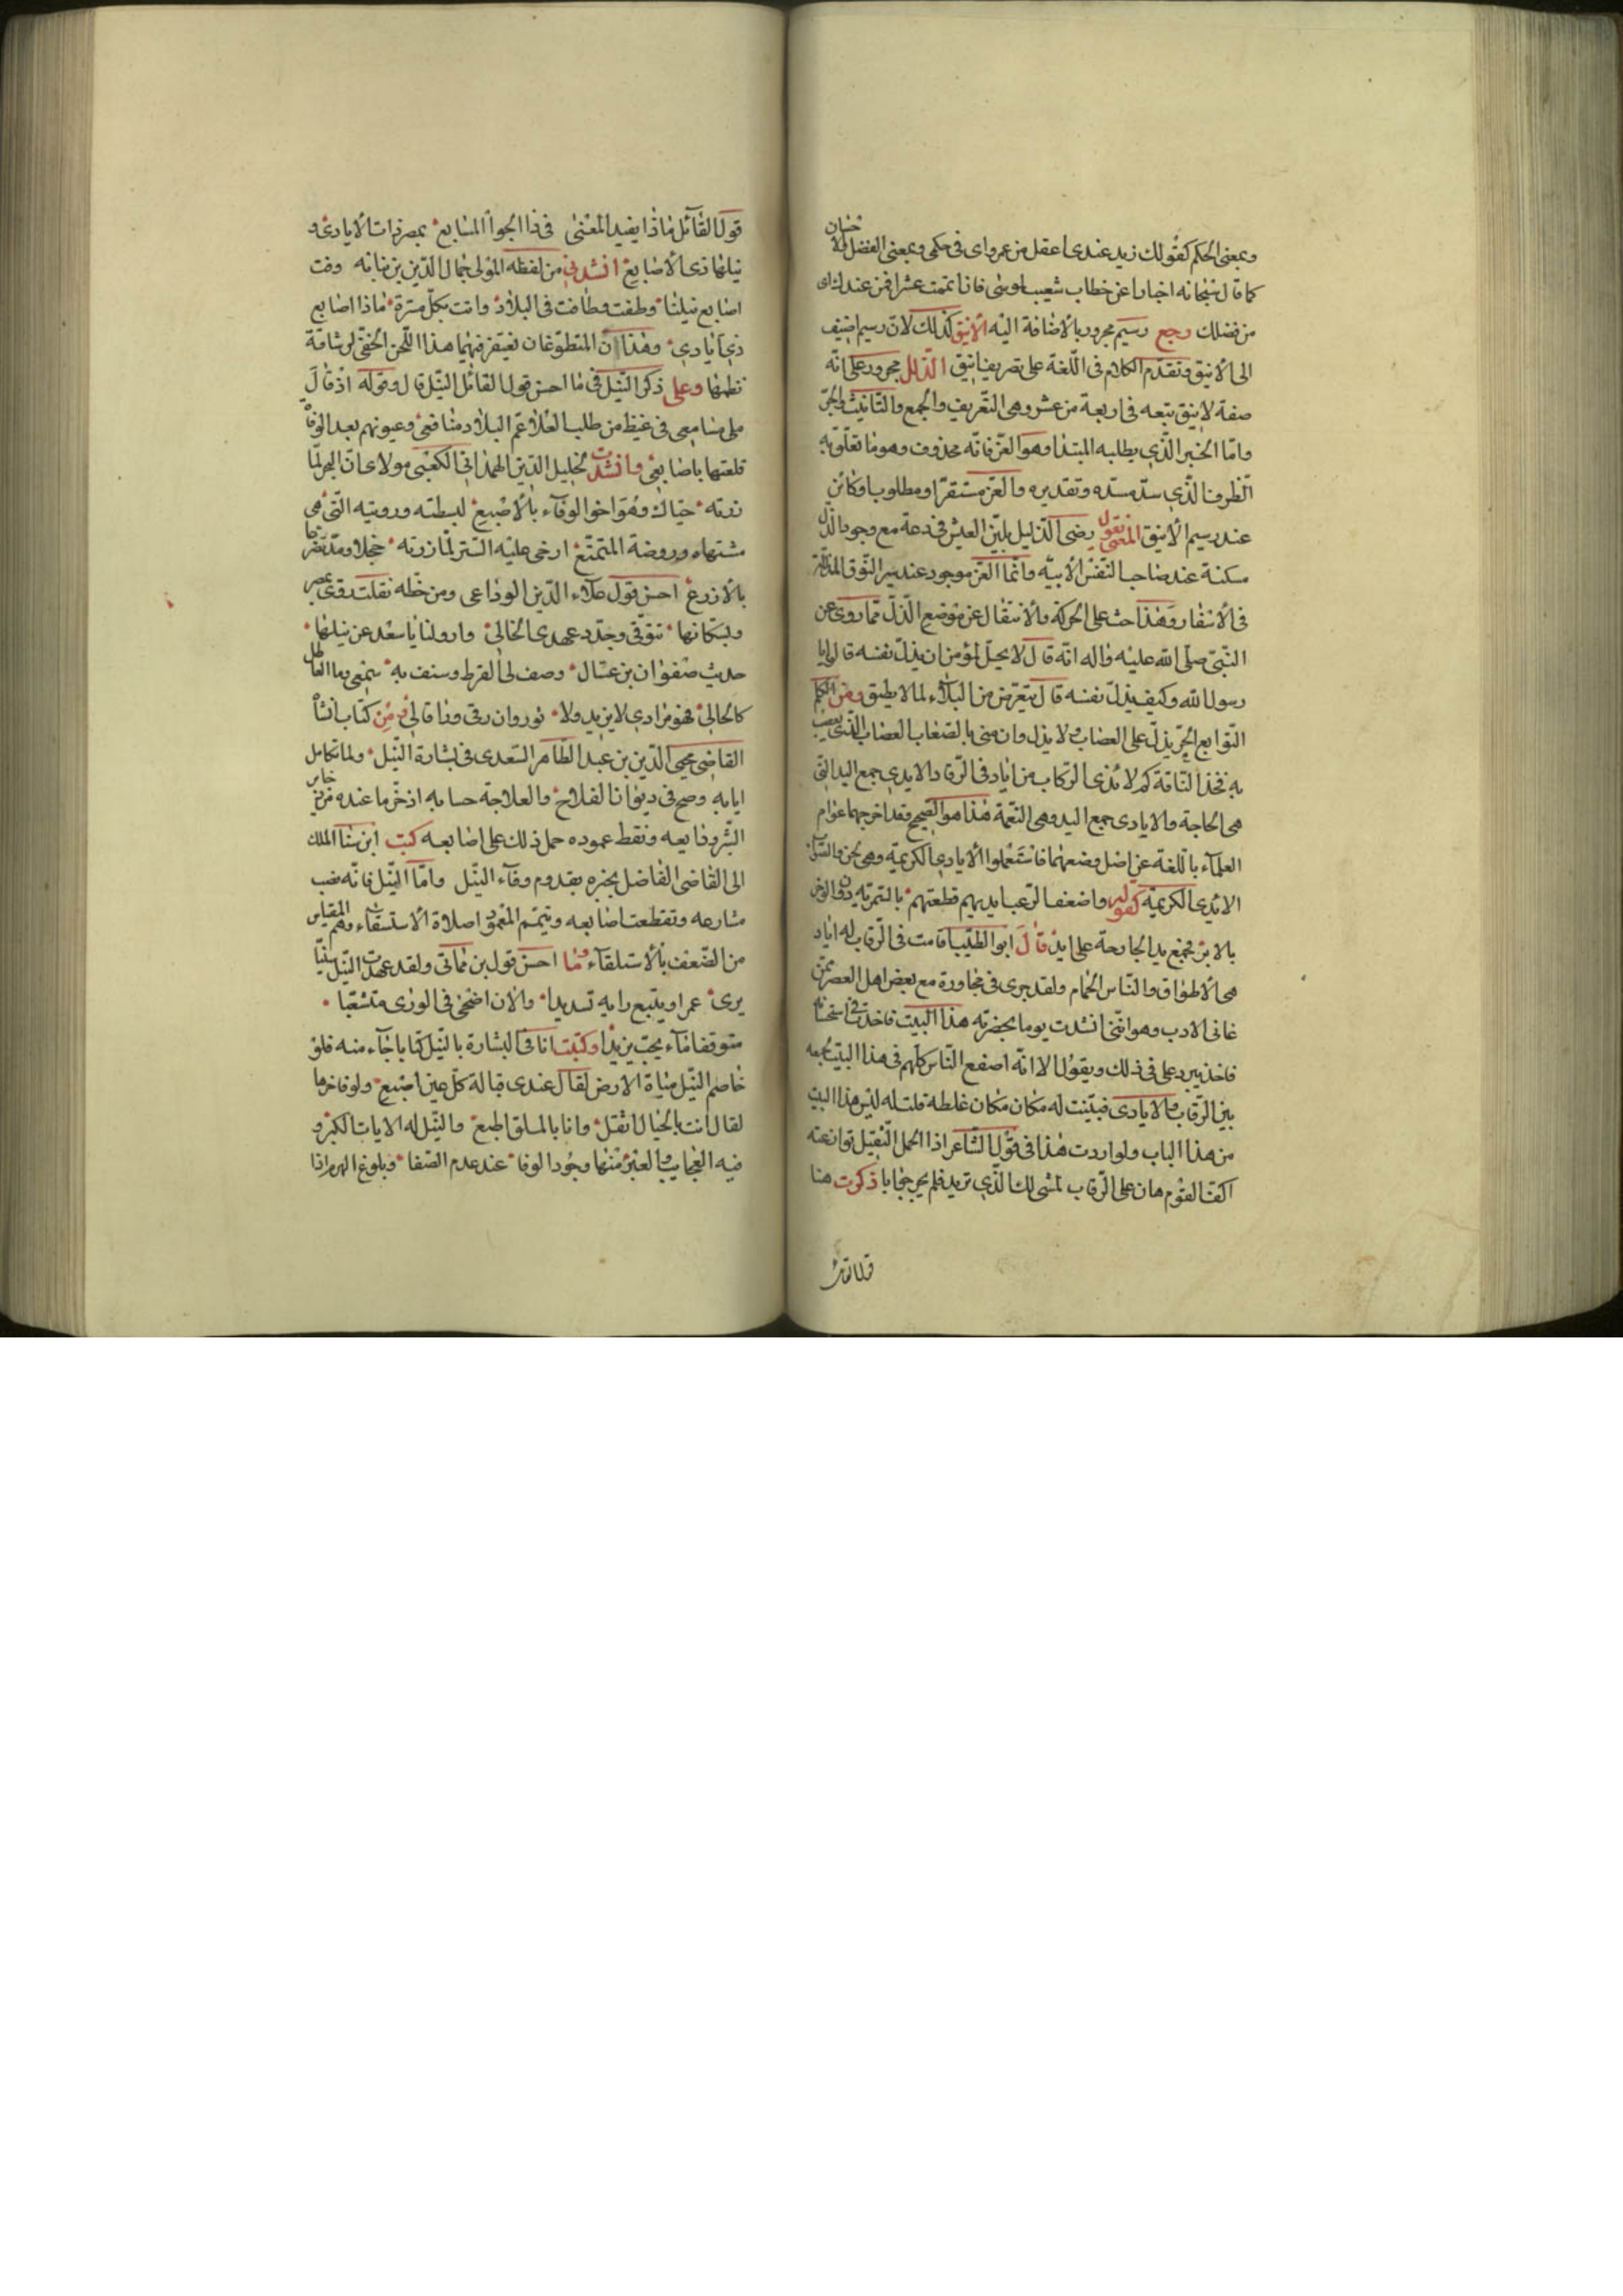 وبمعنى الحكم كقولك زيد عندى اعقل من عمرو اى فى حكمى وبمعنى الفضل والاحسان
كما قال سبحانه اخبارا عن خطاب شعيب لموسى فان اتممت عشرا فمن عندك اى
من فضلك رجع رسيم مجرور بالاضافة اليه الأنيق كذلك لان رسيم اضيف
الى الأنيق وتقدم الكلام فى اللغة على تصريف انيق الذلل مجرور على انه
صفة لاينق تبعه فى اربعة من عشر وهى التعريف والجمع والتانيث والجر
واما الخبر الذى يطلبه المبتدا وهو العز فانه محذوف وهو ما تعلق به
الظرف الذى سد مسده وتقديره والعز مستقر او مطلوب او كائن
عند رسيم الأنيق المعنى يقول رضى الذليل بلين العيش فى دعة مع وجود الذل
مسكنة عند صاحب النفس الأبيه وانما العز موجود عند سير النوق المذللة
فى الأسفار وهذا حث على الحركة والانتقال عن موضع الذل مما روى عن
النبى صلى الله عليه واله انه قال لا يحل لمؤمن ان يذل نفسه قالوا يا
رسول الله وكيف يذل نفسه قال يتعرض من البلاء لما لا يطيق ومن الكلم
النوابغ الحر يذل على العضاب ولا يذل وان منى بالصعاب العضاب الذى يعصب
به فخذ الناقة كم لا يذى الركاب من اياد فى الرقاب الايدى جمع اليد التى
هى الجارحة والايادى جمع اليد وهى النعمة هذا هو الصحيح وقد اخرجهما عوام
العلماء باللغة عن اصل وضعهما فاستعملوا الايادى الكريمة وهى لحن والصواب
الايدى الكريمة كقوله واضعف الرعب ايديهم فطعنهم بالسمهرية دون الوخز
بالابر فجمع يد الجارحة على ايد قال ابو الطيب اقامت فى الرقاب له اياد
هى الأطواق والناس الحمام ولقد جرى فى مجاورة مع بعض اهل العصر ممن
عانى الادب وهو اننى انشدت يوما بحضرته هذا البيت فاخذت فى استحسانه
فاخذ يرد على فى ذلك ويقول الا انه اصفع الناس كلهم فى هذا البيت بجمعه
بين الرقاب والايادى فبينت له مكان مكان غلطه قلت له ليس هذا البيت
من هذا الباب ولو اردت هذا فى قول الشاعر اذا الحمل الثقيل توازعته
اكف القوم هان على الرقاب لمشى لك الذى تريد فلم يحر جوابا ذكرت هنا
قول القائل
قول القائل ماذا يفيد المعنى فى ذا الجوا المتابع بمصر ذات الأيادى و
نيلها ذى الأصابع انشدنى من لفظه المولى جمال الدين بن نباته وفت
اصابع نيلنا وطفت وطافت فى البلاد وانت بكل مسرة ماذا اصابع
ذى ايادى وهذان المقطوعان يغتفر فيهما هذا اللحن الخفى لرشاقة
نظمها وعلى ذكر النيل فى ما احسن قول القائل النيل قال وقوله اذ قال
ملى مسامعى فى غيظ من طلب العلا عم البلاد منافعى وعيونهم بعد الوفا
قلعتها باصابعى وانشدت لخليل الدين الهمذانى الكعبى مولاى ان البحر لما
زرته حياك وهو اخو الوفاء بالأصبع لبسطته ورويته التى هى
مشتهاه وروضة المتمتع ارخى عليه الستر لما زرته خجلا ومد تضرعا
بالأذرع احسن قول علاء الدين الوداعى ومن خطه نقلت روى بمصر
وبسكانها شوقى وجدد عهدى الخالى وارو لنا يا سعد عن نيلها
حديث صفوان بن عسال وصف لى القرط وشنف به سمعى وما العاطل
كالحالى فهو مرادى لا يزيد ولا نور وان رقى وراقا لى ومن كتاب انشاء
القاضى محيى الدين بن عبد الظاهر السعدى فى بشارة النيل ولما تكامل
ايابه وصح فى ديوان الفلاح والعلاجة حسابه اذخر ما عنده من ذخاير
السر وودايعه ونقط عموده حمل ذلك على اصابعه كتب ابن سنا الملك
الى القاضى الفاضل يخبره بقدوم وفاء النيل واما النيل فانه نضب
مشارعه وتقطعت اصابعه وتيمم العمود لصلاة الاستسقاء وهم المقياس
من الضعف بالاستلقاء وما احسن قول بن مماتى ولقد عهدت النيل سنيا
يرى عمرا ويتبع رايه تسديدا والان اضحى فى الورى متشيعا
متوقفا ما ء يحب يزيدا وكتبت انا فى البشارة بالنيل كتابا جاء منه فلو
خاصم النيل مياة الارض لقال عندى قبالة كل عين اصبع ولو فاخرها
لقال انت بالجبال اثقل وانا بالملق اطبع والنيل له الايات الكبر و
فيه العجايب والعبر منها وجود الوفا عند عدم الصفا وبلوغ الهرم اذا